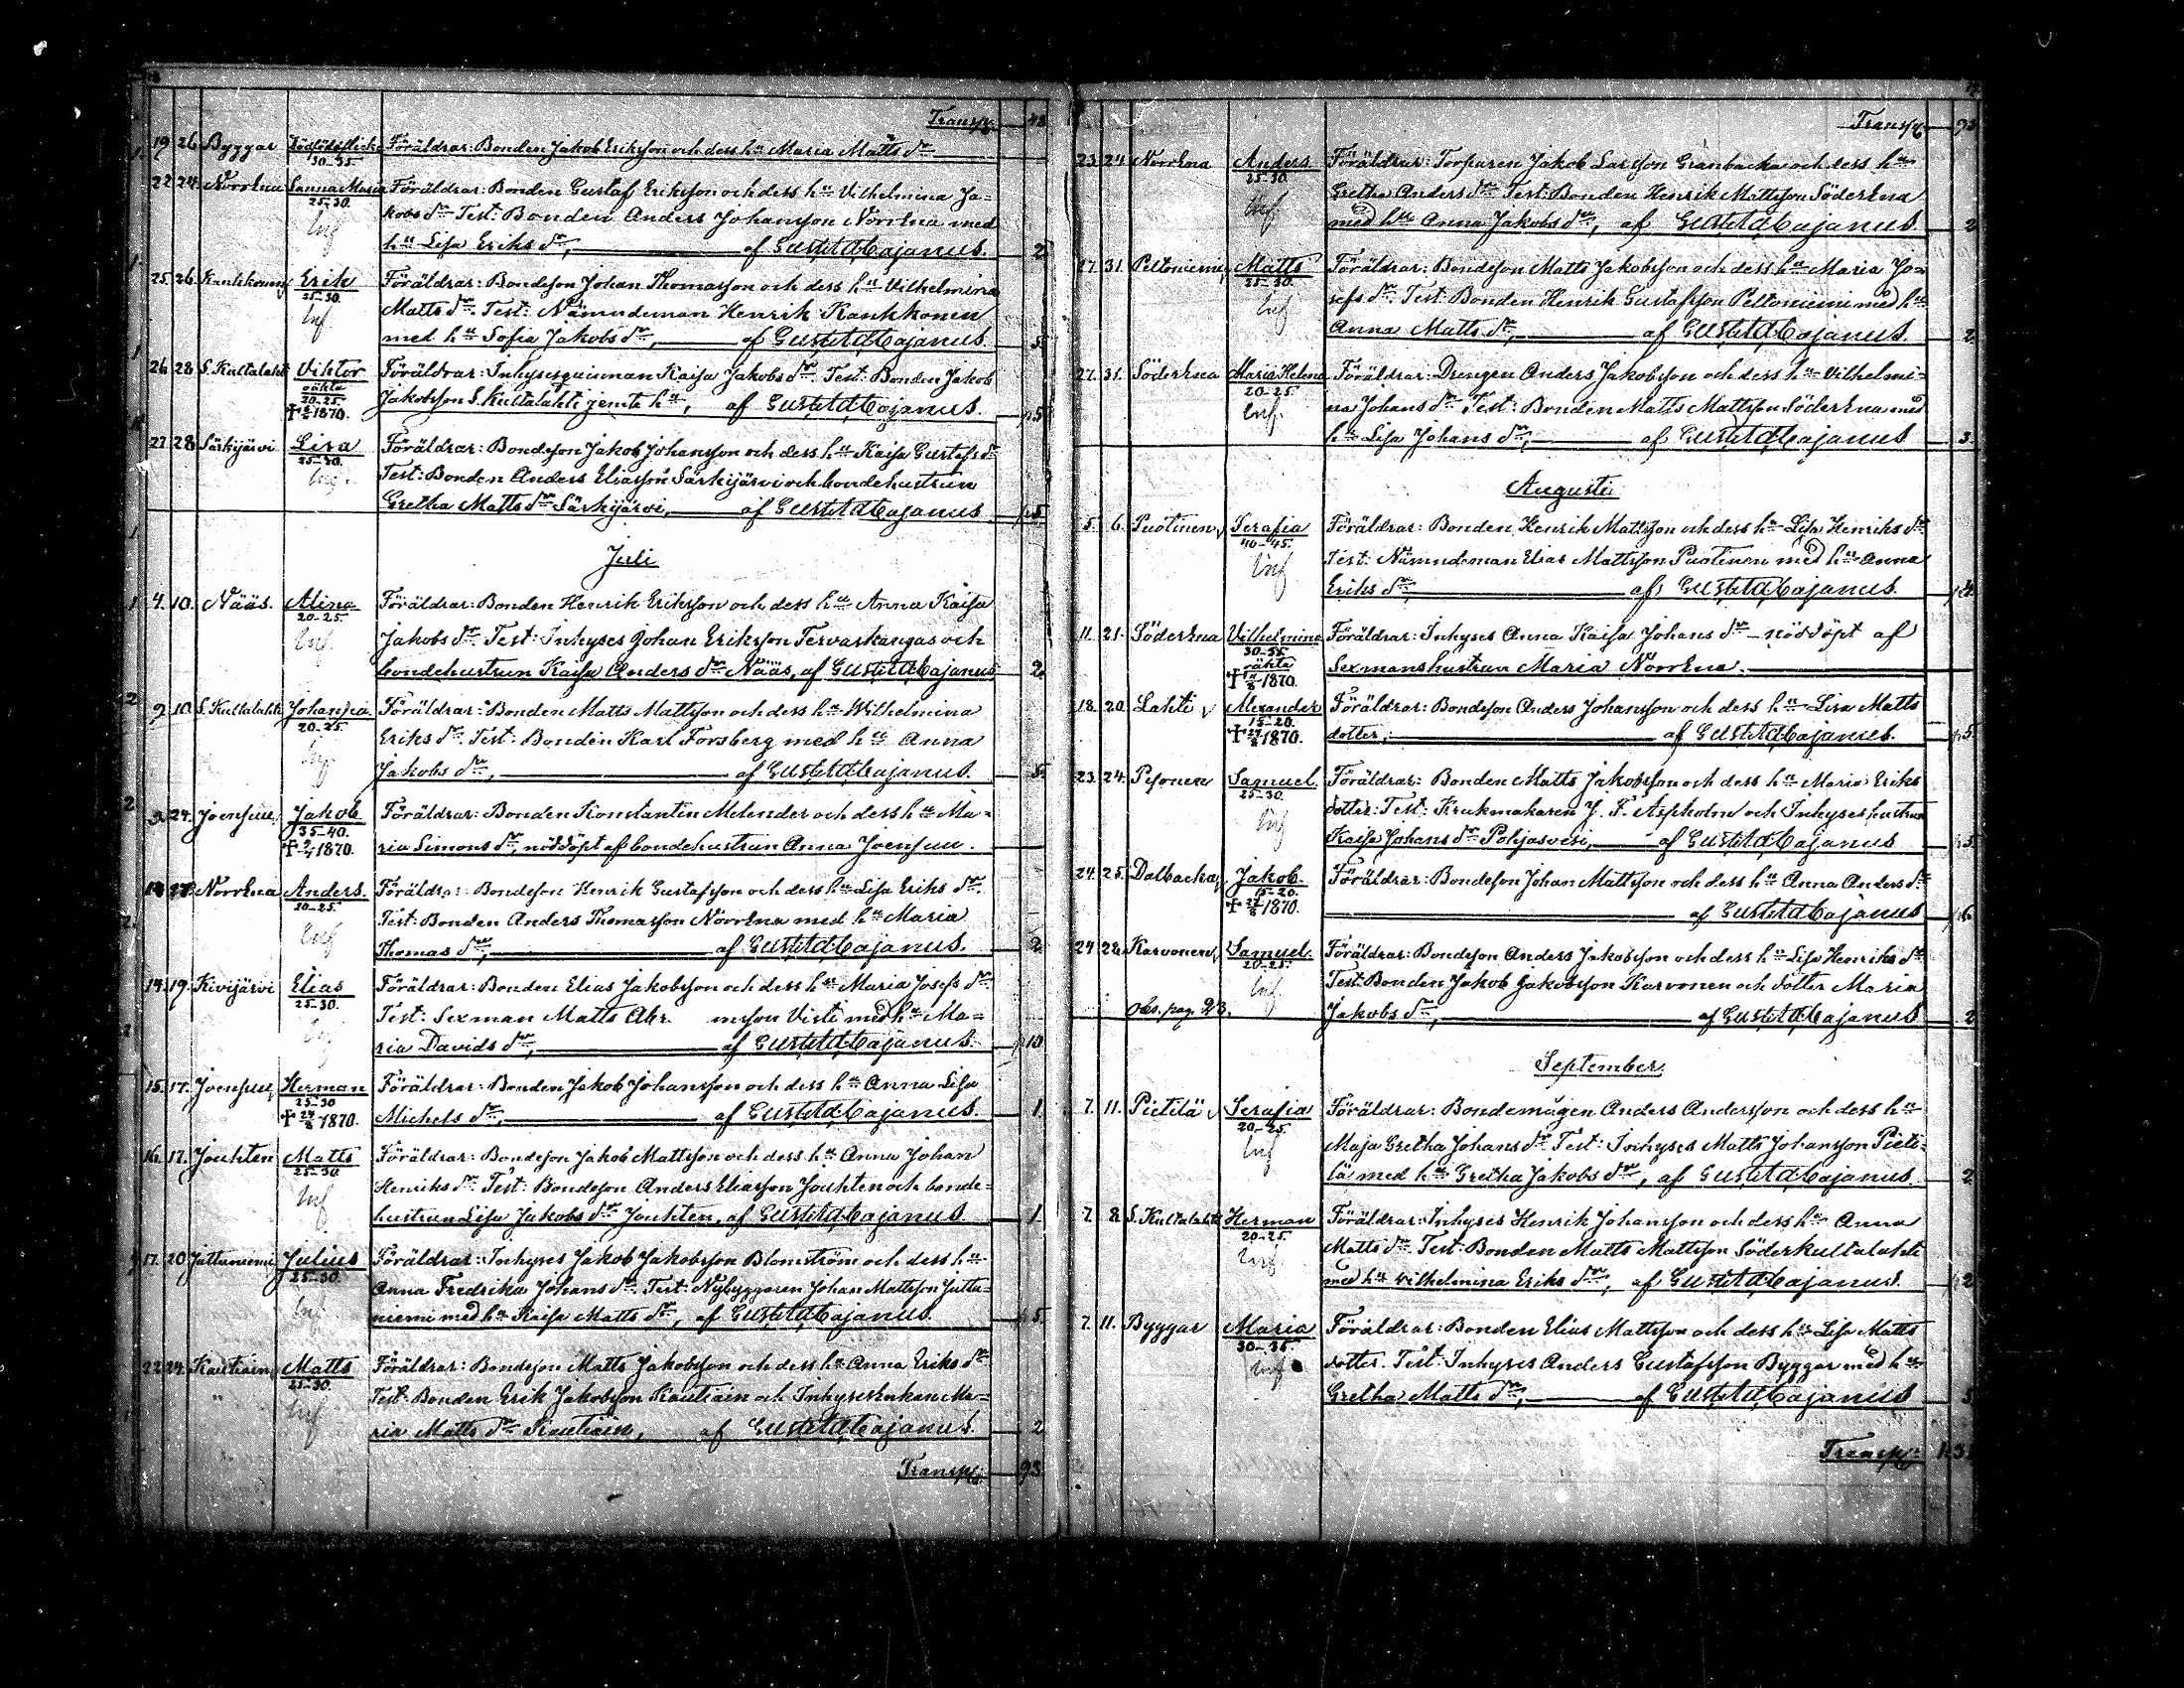 Transp. 48
19. 26. Byggar Dödfödd flicka Föräldrar: Bonden Jakob Eriksson och dess hu Maria Matts dr
30-35
22. 24. Norrena Sanna Maria Föräldrar: Bonden Gustaf Eriksson och dess hu Vilhelmina Ja=
25-30. kobs dr Test: Bonden Anders Johansson Norrena med
Inf hu Lisa Eriks dr, af Gust. Ad. Cajanus. 2
25. 26. Kankkonen Erik Föräldrar: Bondeson Johan Thomasson och dess hu Vilhelmina
25-30. Matts dr. Test: Nämndeman Henrik Kankkonen
Inf. med hu Sofia Jakobs dr, af Gust. Ad. Cajanus. 5
26. 28. S. Kultalahti Viktor Föräldrar: Inhysesquinnan Kaisa Jakobs dr Test: Bonden Jakob
oäkta
20-25 Jakobsson S. Kultalahti jemte hu, af Gust. Ad. Cajanus. 5
1870.
27. 28. Särkijärvi Lisa Föräldrar: Bondeson Jakob Johansson och dess hu Kaisa Gustafs dr
25-30. Test: Bonden Anders Eliasson Särkijärvi och bondehustrun
Inf. Gretha Matts dr Särkijärvi, af Gust. Ad. Cajanus. 5
Juli
4. 10. Nääs. Alina Föräldrar: Bonden Henrik Eriksson och dess hu Anna Kaisa
20-25. Jakobs dr. Test: Inhyses Johan Eriksson Tervaskangas och
Inf. bondehustrun Kaisa Anders dr Nääs, af Gust. Ad. Cajanus 2.
9. 10. S. Kultalahti Johanna Föräldrar: Bonden Matts Mattsson och dess hu Wilhelmina
20-25. Eriks dr. Test: Bonden Karl Forsberg med hu Anna
Inf Jakobs dr, af Gust. Ad. Cajanus. 5.
9. 24. Joensuu Jakob Föräldrar: Bonden Konstantin Melender och dess hu Ma=
35-40.
1870. ria Simons dr, nöddöpt af bondehustrun Anna Joensuu.
14. 17. Norrena Anders. Föräldrar: Bondeson Henrik Gustafsson och dess hu Lisa Eriks dr.
20-25. Test: Bonden Anders Thomasson Norrena med hu Maria
Inf Thomas dr, af Gust. Ad. Cajanus. 2
14. 19. Kivijärvi Elias Föräldrar: Bonden Elias Jakobsson och dess hu Maria Josefs dr
25-30. Test: Sexman Matts Abr. msson Visti med hu Ma=
Inf ria Davids dr, af Gust. Ad. Cajanus. 10
15. 17. Joensuu Herman Föräldrar: Bonden Jakob Johansson och dess hu Anna Lisa
25-30
1870. Michels dr, af Gust. Ad. Cajanus. 1.
16. 17. Jouhten Matts Föräldrar: Bondeson Jakob Mattsson och dess hu Anna Johan
25-30 Henriks dr Test: Bondeson Anders Eliasson Jouhten och bonde=
Inf hustrun Lisa Jakobs dr Jouhten, af Gust. Ad. Cajanus. 1.
17. 20. Juttuniemi Julius Föräldrar: Inhyses Jakob Jakobsson Blomström och dess hu
25-30. Anna Fredrika Johans dr. Test: Nybyggaren Johan Mattsson Juttu=
Inf. niemi med hu Kaisa Matts dr, af Gust. Ad. Cajanus. 5.
22. 24. Kautiain Matts Föräldrar: Bondeson Matts Jakobsson och dess hu Anna Eriks dr
25-30. Test: Bonden Erik Jakobsson Kautiain och Inhysesenkan Ma=
Inf ria Matts dr Kautiain, af Gust. Ad. Cajanus. 2
Transp. 93.
Transp. 93
23. 24. Norrena Anders. Föräldrar: Torparen Jakob Larsson Granbacka och dess hu
25-30. Gretha Anders dr Test: Bonden Henrik Mattsson Söderena
Inf. med hu Anna Jakobs dr, af Gust. Ad. Cajanus. 2
27. 31. Peltoniemi Matts Föräldrar: Bondeson Matts Jakobsson och dess hu Maria Jo=
25-30. sefs dr. Test: Bonden Henrik Gustafsson Peltoniemi med hu
Inf Anna Matts dr, af Gust. Ad. Cajanus. 2
27. 31. Söderena Maria Helena Föräldrar: Drengen Anders Jakobsson och dess hu Vilhelmi=
20-25. na Johans dr Test: Bonden Matts Mattsson Söderena med
Inf. hu Lisa Johans dr, af Gust. Ad. Cajanus 3.
Augusti
5. 6. Puotinen Serafia Föräldrar: Bonden Henrik Mattsson och dess hu Lisa Henriks dr
40-45. Test: Nämndeman Elias Mattsson Puotinen med hu Anna
Inf Eriks dr af Gust. Ad. Cajanus. 4
11. 21. Söderena Vilhelmina Föräldrar: Inhyses Anna Kaisa Johans dr nöddöpt af
30-35
oäkta Sexmanshustrun Maria Norrena.
1870.
18. 20. Lahti Alexander Föräldrar: Bondeson Anders Johansson och dess hu Lisa Matts
15-20.
1870. dotter, af Gust. Ad. Cajanus. 5
23. 24. Pesonen Samuel. Föräldrar: Bonden Matts Jakobsson och dess hu Maria Eriks
25-30. dotter. Test: Krukmakaren J. F. Aspholm och Inhyseshustrun
Inf Kaisa Johans dr Pohjasvesi, af Gust. Ad. Cajanus 5
24. 25. Dalbacka Jakob. Föräldrar: Bondeson Johan Mattsson och dess hu Anna Anders dr
15-20.
1870. af Gust. Ad. Cajanus 6.
24. 28. Karvonen Samuel. Föräldrar: Bondeson Anders Jakobsson och dess hu Lisa Henriks dr
20-25. Test: Bonden Jakob Jakobsson Karvonen och dotter Maria
Obs. pag. 23. Inf Jakobs dr, af Gust. Ad. Cajanus 2
September.
7. 11. Pietilä Serafia Föräldrar: Bondemågen Anders Andersson och dess hu
20-25. Maja Gretha Johans dr Test: Inhyses Matts Johansson Pieti=
Inf lä med hu Gretha Jakobs dr, af Gust. Ad. Cajanus. 2
7. 8. S. Kultalahti Herman Föräldrar: Inhyses Henrik Johansson och dess hu Anna
20-25. Matts dr Test: Bonden Matts Mattsson Söderkultalahti
Inf. med hu Vilhelmina Eriks dr, af Gust. Ad. Cajanus. 2
7. 11. Byggar Maria Föräldrar: Bonden Elias Mattsson och dess hu Lisa Matts
30-35. dotter. Test: Inhyses Anders Gustafsson Byggar med hu
Inf Gretha Matts dr, af Gust. Ad. Cajanus 5
Transp. 131